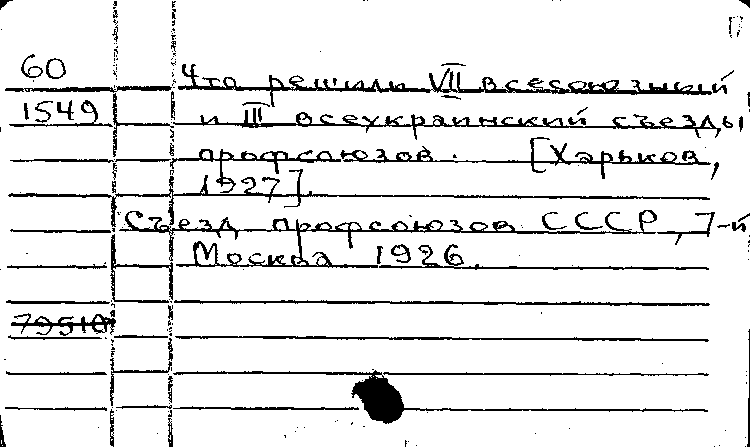 60 Что решили VII всесоюзный
1549 и III всеукраинский съезды
профсоюзов. [Харьков,
1927].
Съезд профсоюзов СССР, 7-й
Москва 1926.
79510